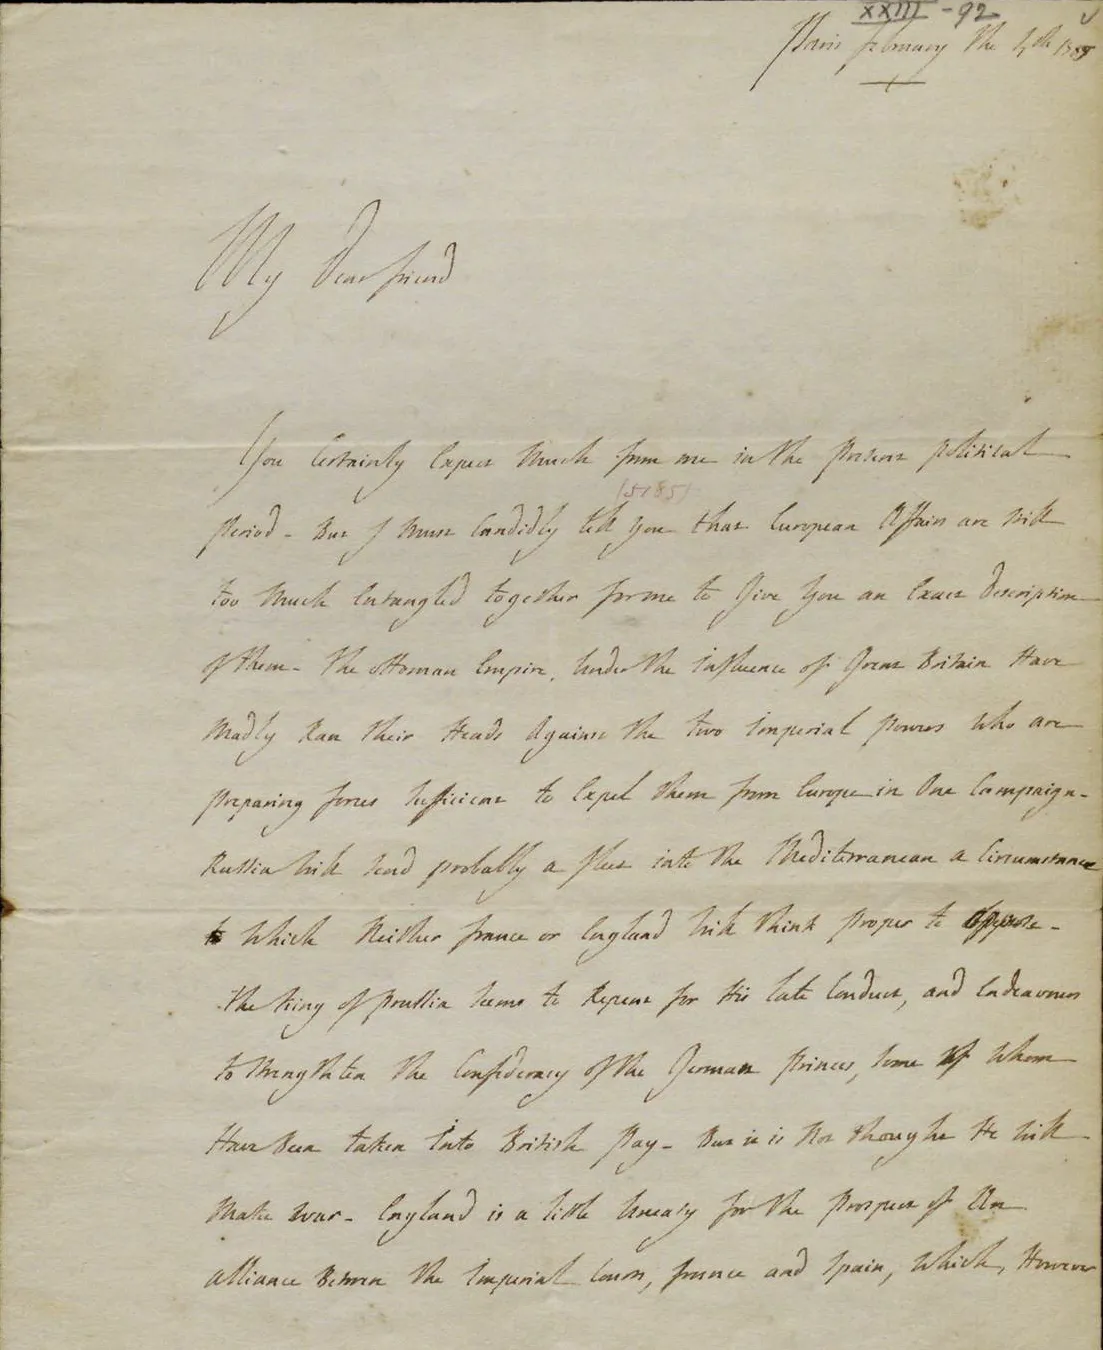 XXIII - 92
Paris february the 4th 1788
My dear friend
You Certainly Expect Much from me in the present political
(5185)
Period - But I Must Candidly tell You that European Affairs are still
too Much Entangled together for me to Give You an Exact description
of them - the Ottoman Empire, Under the influence of Great Britain Have
Madly Ran their Heads Against the two imperial powers who are
preparing forces Sufficient to Expel them from Europe in One Campaign -
Russia Will Send probably a fleet into the Mediterranean a Circumstance
to Which Neither france or England Will think Proper to Oppose -
the King of prussia Seems to Repent for His late Conduct, and Endeavours
to Strengthten the Confideracy of the German Princes, Some of Whom
Have Been taken into British Pay - But it is Not thought He Will
Make war - England is a little Uneasy for the Prospect of An
alliance Betwen the imperial Courts, france and Spain, Which, However